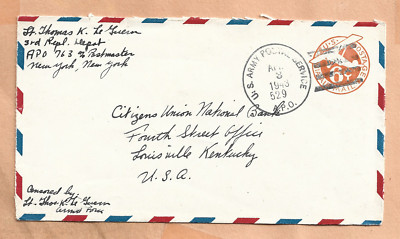 Lt. Thomas K. Le Guern
3rd Repl. Depot
APO 763 % Postmaster
New York, New York
U.S. ARMY POSTAL SERVICE
3
1943
529
A.P.O.
U.S. POSTAGE
6¢
Citizens Union National Bank
Fourth Street Office
Louisville Kentucky
U.S.A.
Censored by:
Lt. Thos. K. Le Guern